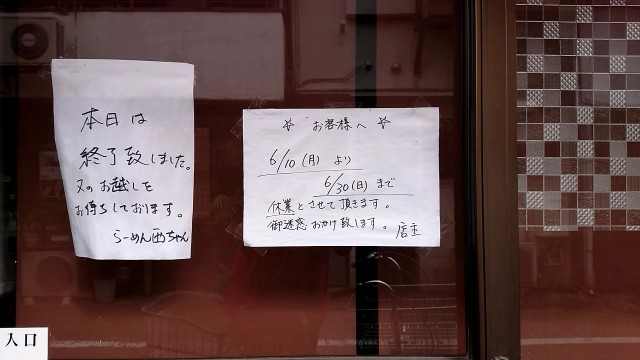 本日は
終了致しました。
又のお越しを
お待ちしております。
らーめん西ちゃん
お客様へ
6/10(月) より
6/30(日) まで
休業とさせて頂きます。
御迷惑おかけ致します。
店主
入口